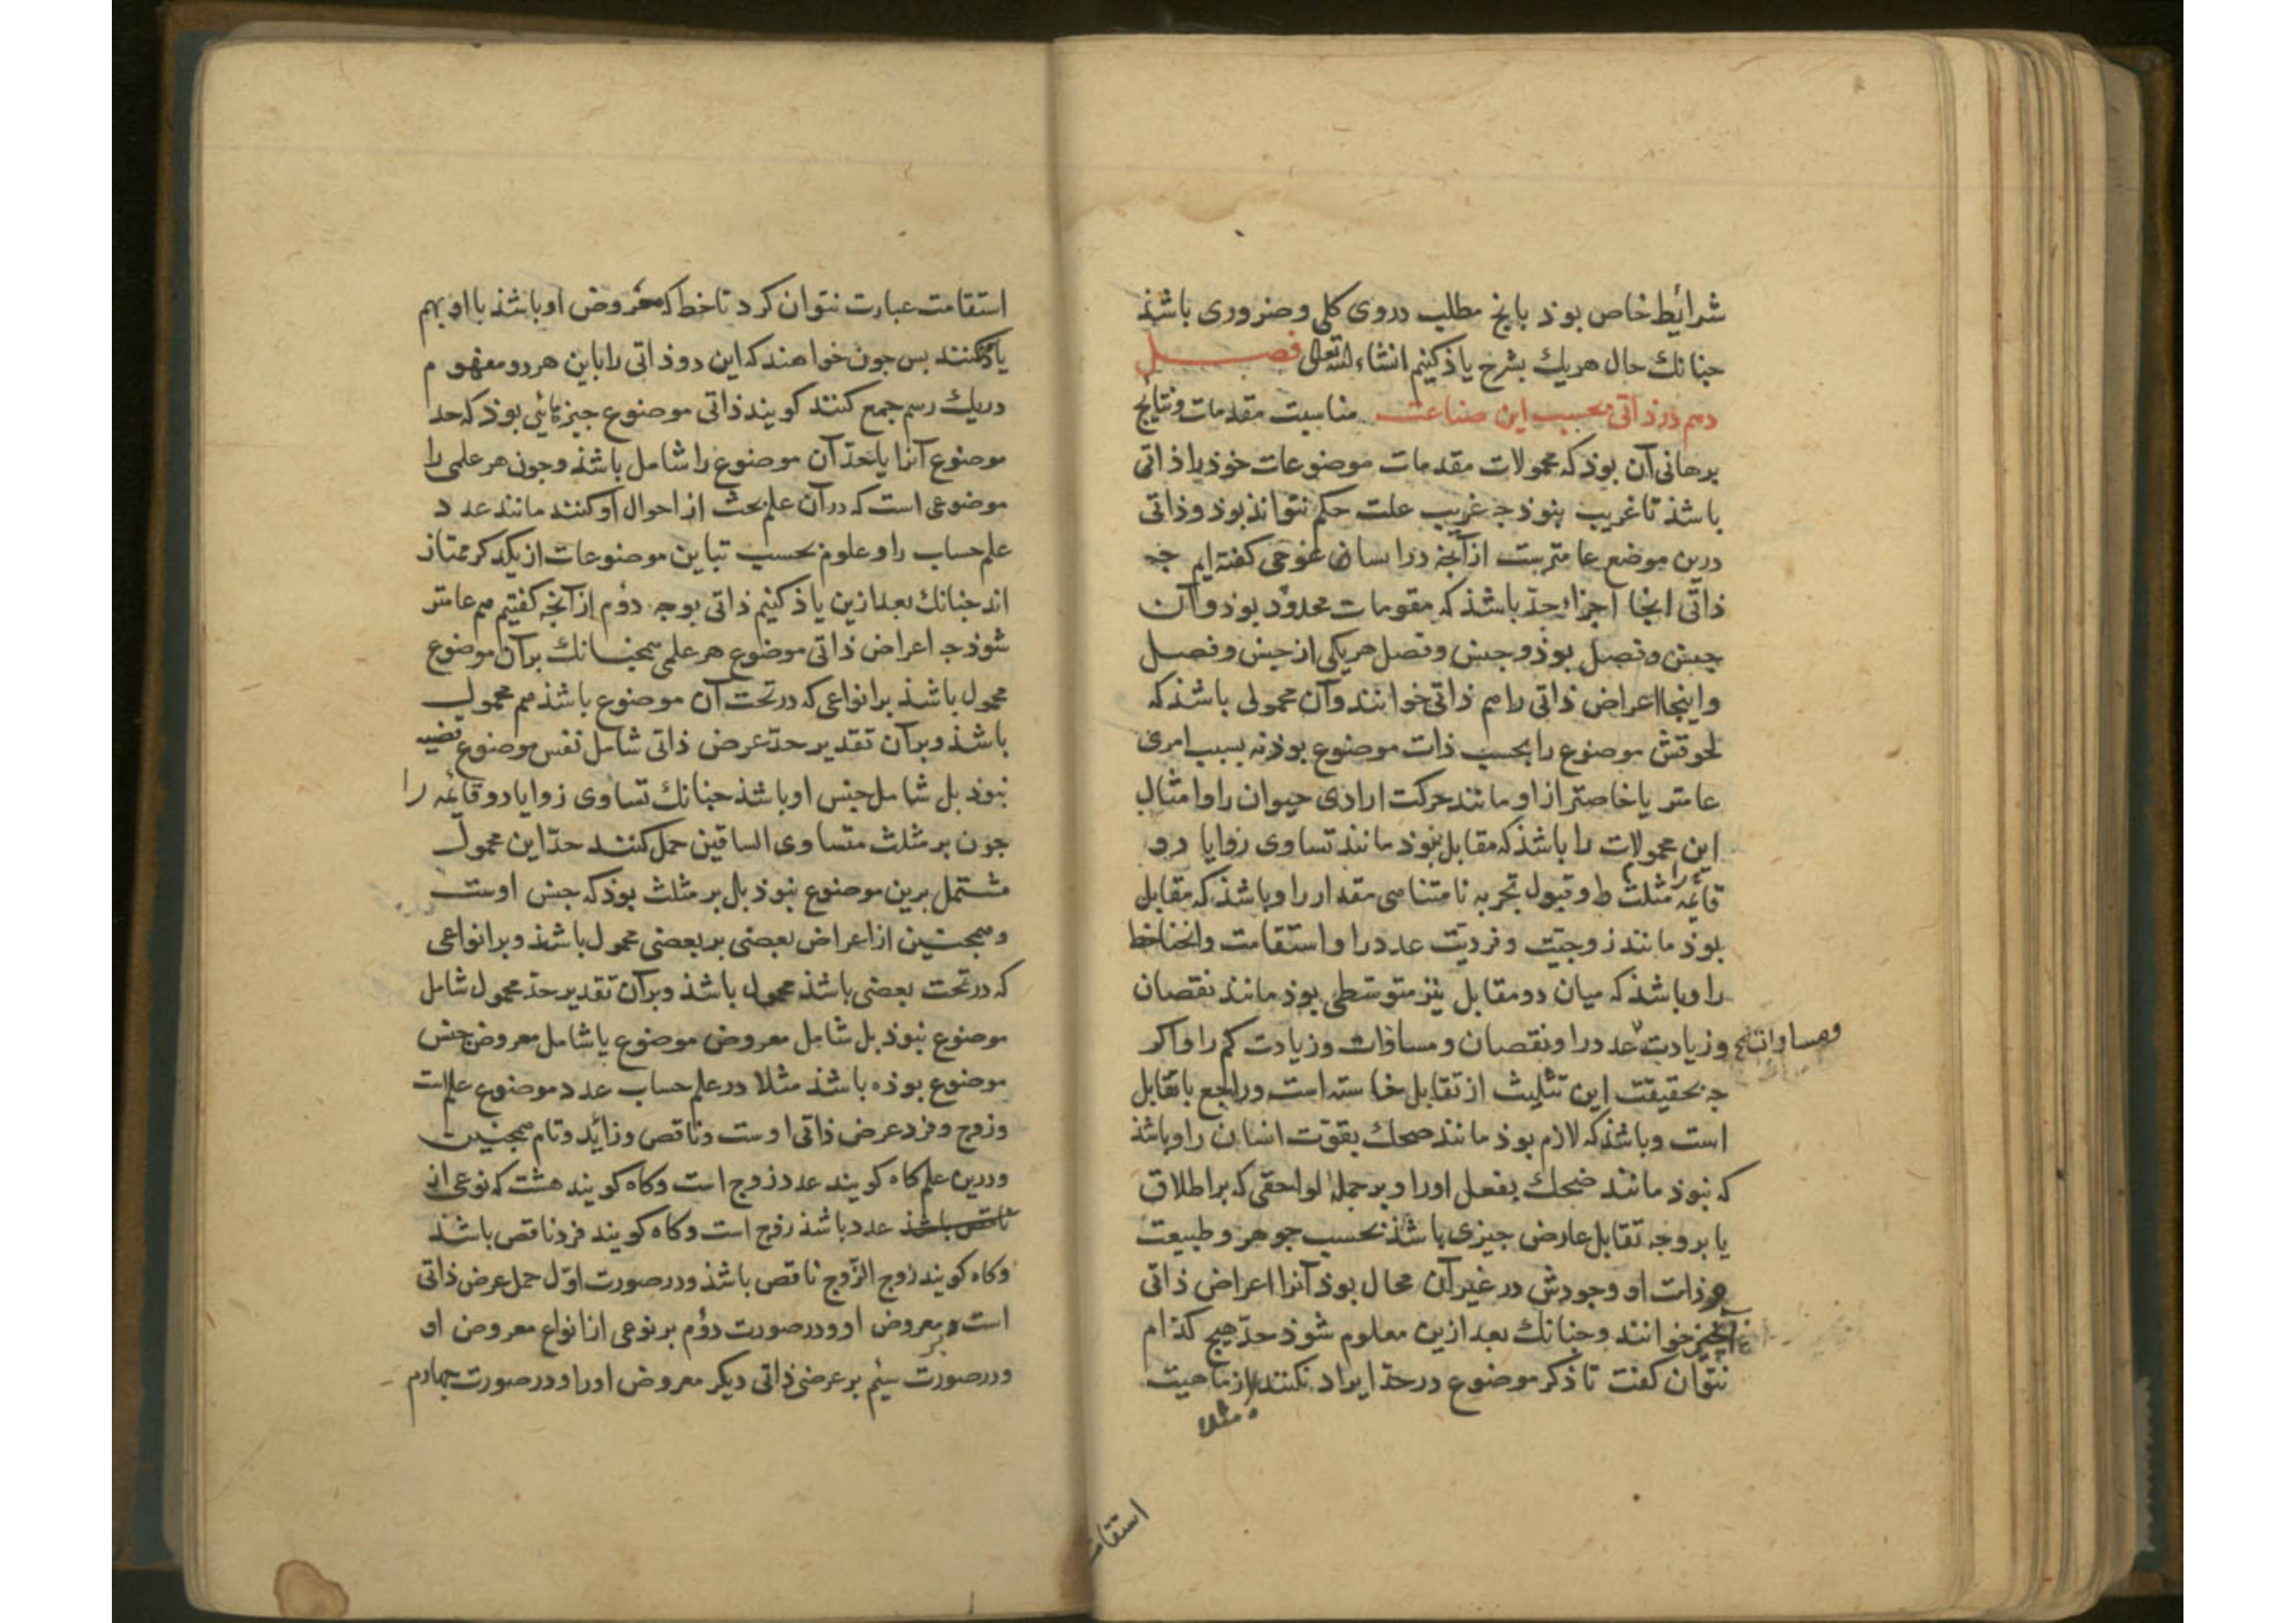 شرائط خاص بوذ بانج مطلب دروی کلی وضروری باشذ
جنانك حال هریك بشرح یاذ کنیم انشاء الله تعالی فصل
دهم در ذاتی بحسب این صناعت مناسبت مقدمات ونتایج
برهانی آن بوذ که محمولات مقدمات موضوعات خوذ را ذاتی
باشذ تا غریب نبوذ جه غریب علت حکم نتوانذ بوذ وذاتی
درین موضع عامترست از آنجه در ایساغوجی کفته ایم جه
ذاتی انجا اجزاء حد باشذ که مقومات محدود بوذ وآن
جنس وفصل بوذ وجنس وفصل هریکی از جنس وفصل
واینجا اعراض ذاتی را هم ذاتی خوانند وآن محمولی باشذ که
لحوقش موضوع را بحسب ذات موضوع بوذ نه بسبب امری
عامتر یا خاصتر از او مانند حرکت ارادی حیوان را وامثال
این محمولات را باشذ که مقابل نبوذ مانند تساوی زوایا دو
قائمه را مثلث را وقبول تجزیه نامتناهی مقدار را وباشذ که مقابل
بوذ مانند زوجیت وفردیت عدد را واستقامت وانحنا خط
را وباشذ که میان دو مقابل نیز متوسطی بوذ مانند نقصان
وزیادت عدد را ونقصان ومساوات وزیادت کم را واکر
ومساوات
جه بحقیقت این تثلیث از تقابل خاسته است وراجع با تقابل
است وباشذ که لازم بوذ مانند ضحك بقوت انسان را وباشذ
که نبوذ مانند ضحك بفعل اورا وبرجمله لواحقی که بر اطلاق
یا بر وجه تقابل عارض جیزی باشذ بحسب جوهر وطبیعت
وذات او وجودش در غیر آن محال بوذ آنرا اعراض ذاتی
آنجیز خوانند وجنانك بعد ازین معلوم شوذ حد هیج کذام
نتوان کفت تا ذکر موضوع در حد ایراد نکنند از ماهیت
مثلا
استقامت
استقامت عبارت نتوان کرد تا خط که معروض او باشذ با او بهم
یاذ نکنند بس جون خواهند که این دو ذاتی را باین هر دو مفهوم
در یك رسم جمع کنند کویند ذاتی موضوع جیزهائی بوذ که حد
موضوع آنرا یا حد آن موضوع را شامل باشذ وجون هر علمی را
موضوعی است که در آن علم بحث از احوال او کنند مانند عدد
علم حساب را وعلوم بحسب تباین موضوعات از یکدکر ممتاز
اند جنانك بعد ازین یاذ کنیم ذاتی بوجه دوم از آنجه کفتیم هم عامتر
شوذ جه اعراض ذاتی موضوع هر علمی همجنانك بر آن موضوع
محمول باشذ بر انواعی که در تحت آن موضوع باشذ هم محمول
باشذ وبر آن تقدیر حد عرض ذاتی شامل نفس موضوع قضیه
نبوذ بل شامل جنس او باشذ جنانك تساوی زوایا دو قائمه را
جون بر مثلث متساوی الساقین حمل کنند حد این محمول
مشتمل برین موضوع نبوذ بل بر مثلث بوذ که جنس اوست
وهمجنین از اعراض بعضی بر بعضی محمول باشذ وبر انواعی
که در تحت بعضی باشذ محمول باشذ وبر آن تقدیر حد محمول شامل
موضوع نبوذ بل شامل معروض موضوع یا شامل معروض جنس
موضوع بوذه باشذ مثلا در علم حساب عدد موضوع علم است
وزوج وفرد عرض ذاتی اوست وناقص وزائد وتام همجنین
ودرین علم کاه کویند عدد زوج است وکاه کویند هشت که نوعی از
ناقص باشذ عدد باشذ زوج است وکاه کویند فرد ناقص باشذ
وکاه کویند زوج الزوج ناقص باشذ ودر صورت اول حمل عرض ذاتی
است بر معروض او ودر صورت دوم بر نوعی از انواع معروض او
ودر صورت سیم بر عرضی ذاتی دیکر معروض اورا ودر صورت جهارم